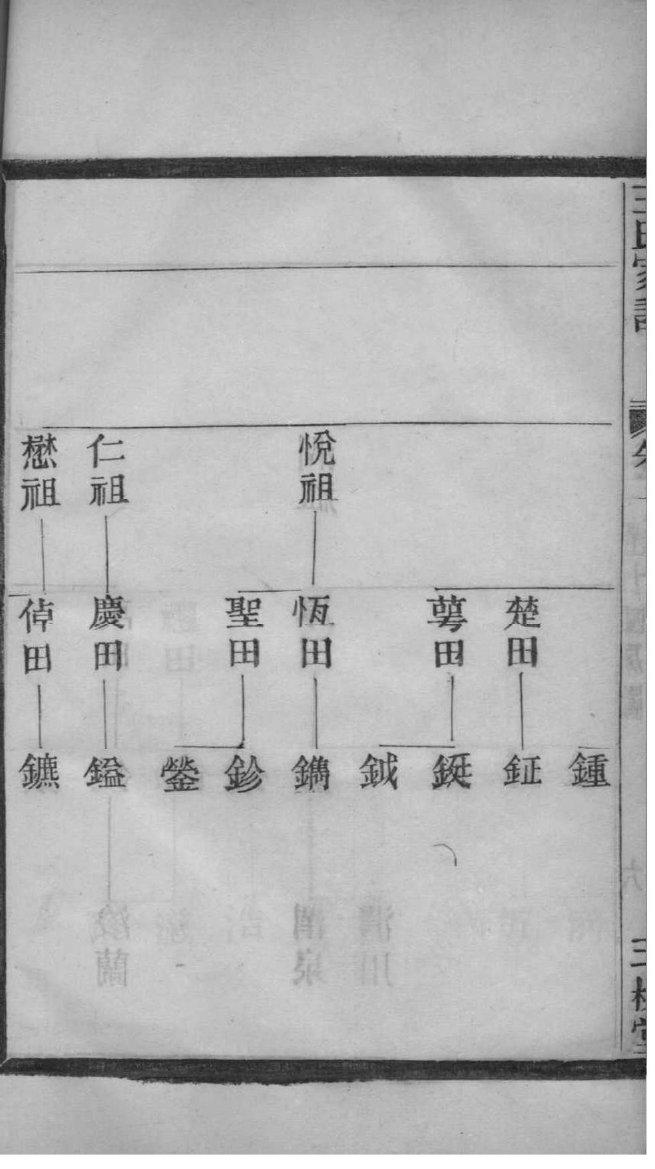 王氏家譜
卷一
三槐堂
悅祖
仁祖
懋祖
楚田
萼田
恆田
聖田
慶田
倬田
鍾
鉦
鋋
鉞
鐫
鉁
鎣
鎰
鑣